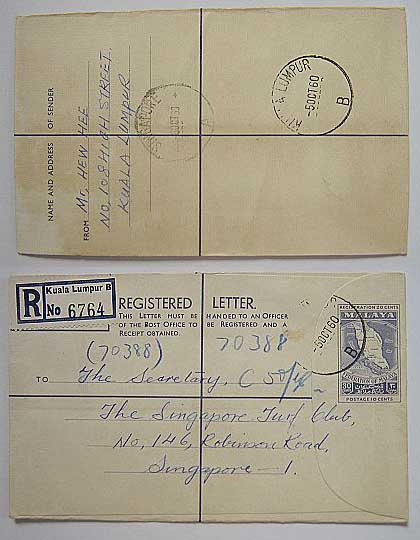 NAME AND ADDRESS OF SENDER
FROM Mr. HEW HEE
NO, 108 HIGH STREET.
KUALA LUMPUR
SINGAPORE
KUALA LUMPUR
-5OCT60
B
R
Kuala Lumpur B
No 6764
REGISTERED LETTER.
THIS LETTER MUST BE HANDED TO AN OFFICER
OF THE POST OFFICE TO BE REGISTERED AND A
RECEIPT OBTAINED.
(70388) 70388
TO The Secretary,
The Singapore Turf Club,
No, 146, Robinson Road,
Singapore - 1.
-5OCT60
B
REGISTRATION 20 CENTS
MALAYA
POSTAGE 10 CENTS